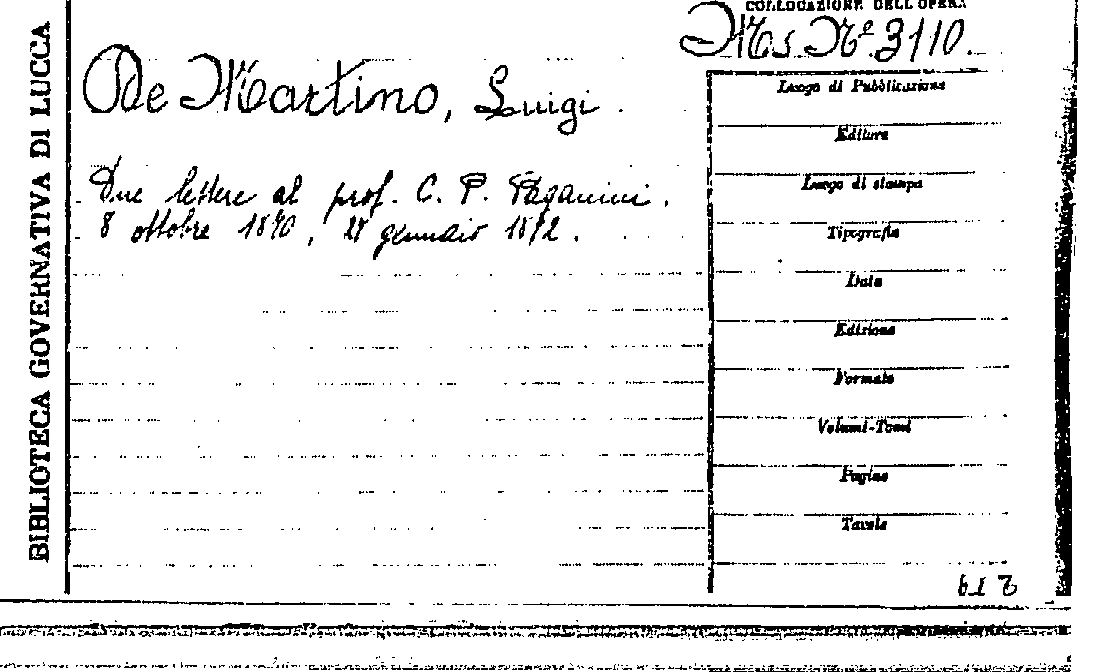 BIBLIOTECA GOVERNATIVA DI LUCCA
COLLOCAZIONE DELL'OPERA
Ms. Nº. 3110.
De Martino, Luigi.
Due lettere al prof. C. P. Paganini.
8 ottobre 1870, gennaio
Luogo di Pubblicazione
Editore
Luogo di stampa
Tipografia
Data
Edizione
Formato
Volumi-Tomi
Pagine
Tavole